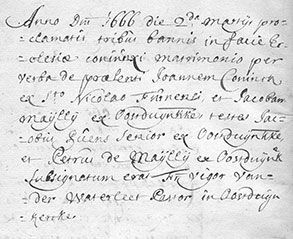 Anno Dni 1666 die 2da martij pro-
clamatis tribus bannis in facie Ec-
clesiæ coniunxi matrimonio per
verba de præsenti Joannem Coninck
ex Sto Nicolao Furnensi, et Jacobam
Maÿllÿ ex Oostduÿnkke, testes Ja-
cobus senior ex Oostduÿnkke
et Petrus de Maÿllÿ ex Oostduÿnk
Subsignatum erat Van-
der Waterleet Pastor in Oostduÿn
kercke